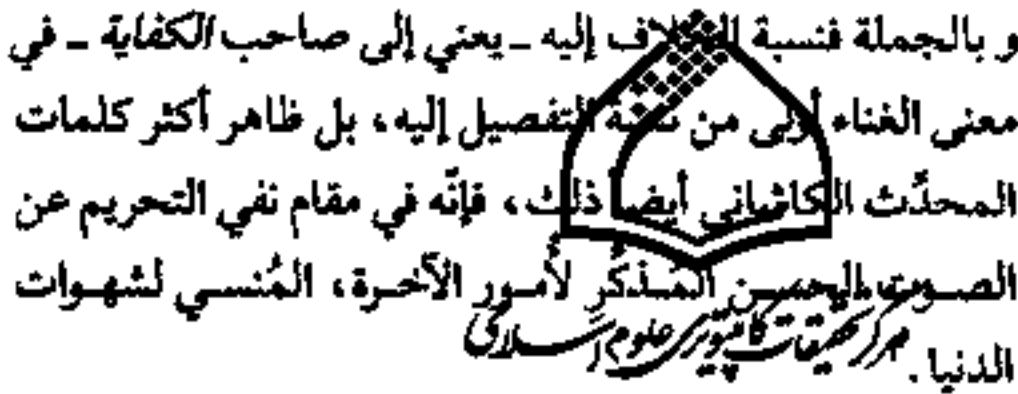 و بالجملة فنسبة الخلاف إليه ـ يعني إلى صاحب الكفاية ـ في
معنى الغناء أولى من نسبة التفصيل إليه، بل ظاهر أكثر كلمات
المحدِّث الكاشاني أيضاً ذلك، فإنّه في مقام نفي التحريم عن
الصوت الحسن المذكِّر لأُمور الآخرة، المُنسي لشهوات
الدنيا.
مرکز تحقیقات کامپیوتری علوم اسلامی